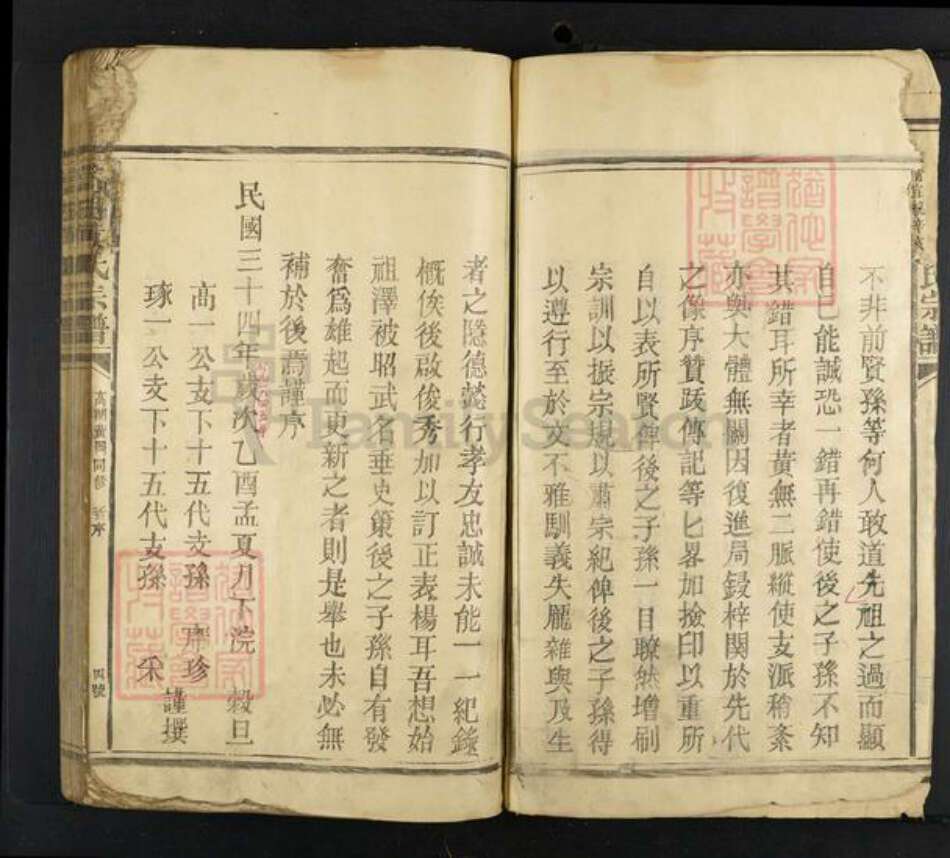 氏宗譜
不非前賢孫等何人敢道先祖之過而顯
自已能誠恐一錯再錯使後之子孫不知
其錯耳所幸者黃無二脈縱使支派稍紊
亦與大體無關因復進局鋟梓関於先代
之像序贊跋傳記等匕畧加撿印以重所
自以表所賢俾後之子孫一目瞭然增刷
宗訓以振宗規以肅宗紀俾後之子孫得
以遵行至於文不雅馴義失龎雜與及生
者之隱德懿行孝友忠誠未能一一紀錄
概俟後啟俊秀加以訂正表楊耳吾想始
祖澤被昭武名垂史策後之子孫自有發
奮爲雄起而更新之者則是舉也未必無
補於後焉謹序
民國三十四年歲次乙酉孟夏月下浣 榖旦
高一公支下十五代支孫 珍
琢一公支下十五代支孫 采
謹撰
氏宗譜
序
四號
FamilySearch